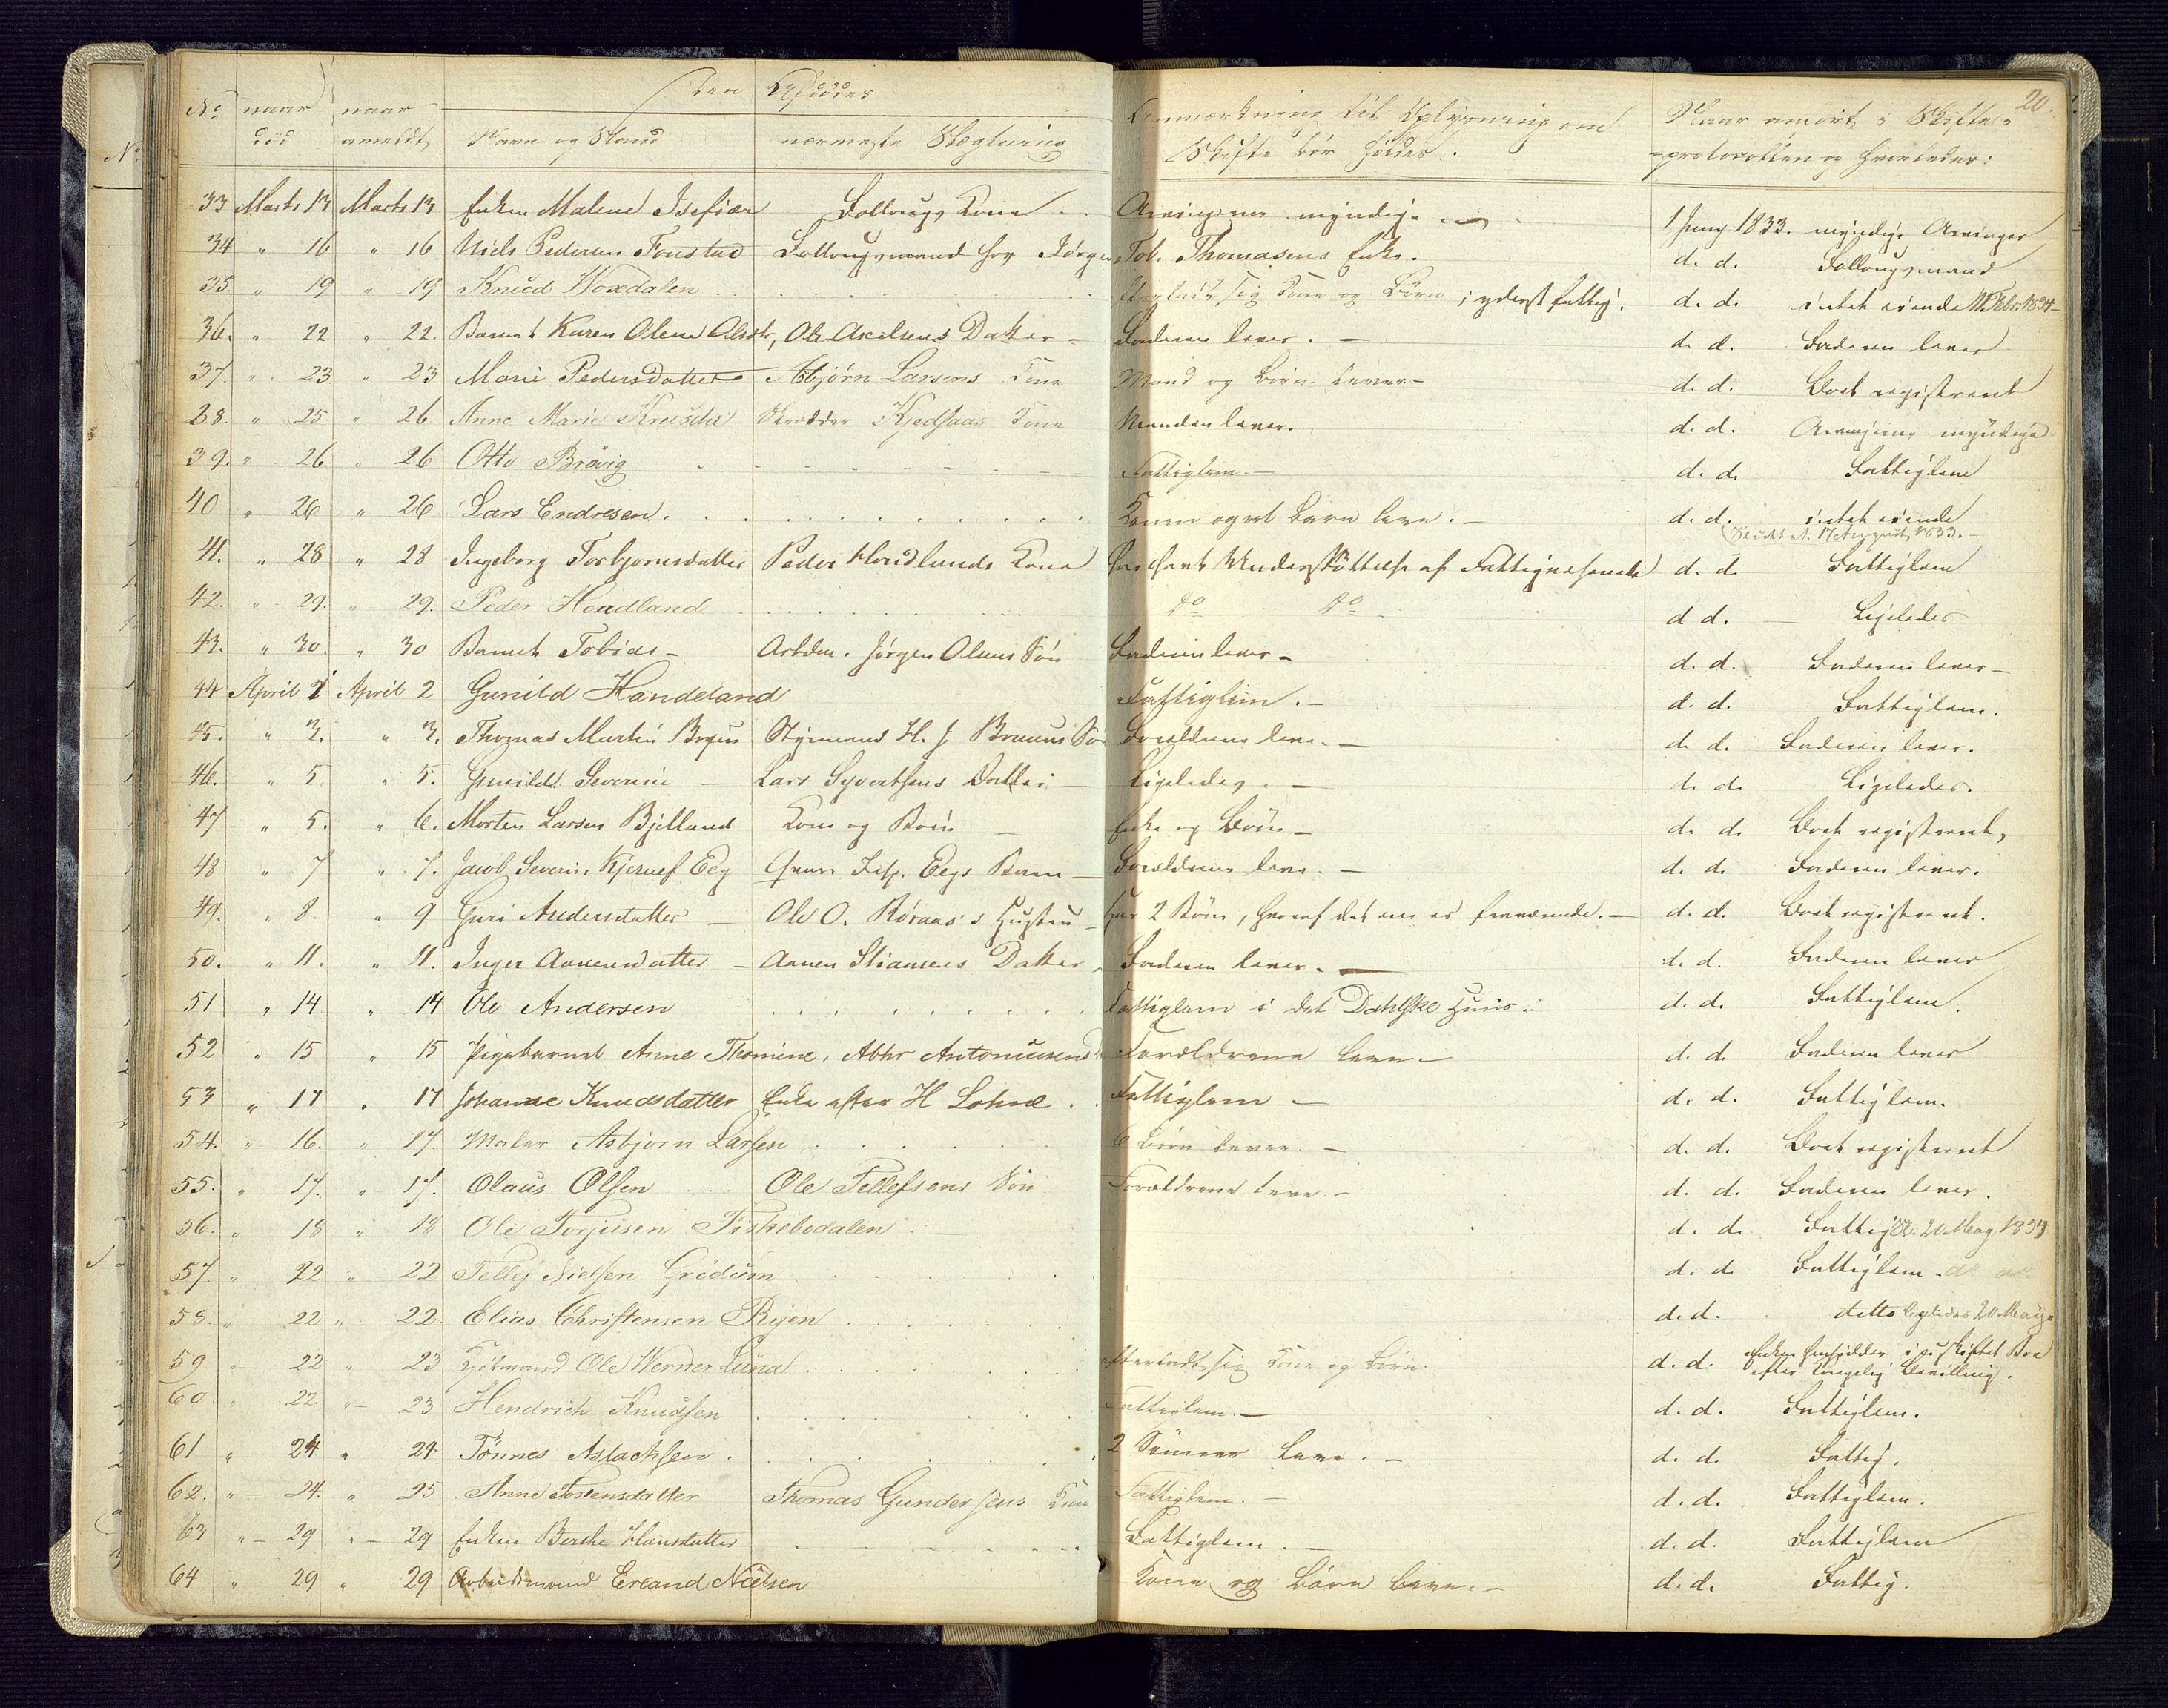 20.
No naar død naar anmeldt Den Afdødes Navn og Stand nærmeste Slægtning Anmærkning til Oplysning om Skifte bør holdes. Naar anført i Skifte-protocollen og hvorledes:
33 Marts 13 Marts 13 Enken Malene Isefiær Follougs Kone Arvingerne myndige 1 Juny 1833. myndige Arvinger
34 " 16 " 16 Niels Pedersen Fonstad Follougsmand hos Jørgen Tob. Thomasens Enke. d. d. Follougsmand
35. " 19 " 19 Knud Hoxdalen efterladt sig Kone og Børn; yderst fattig. d. d. intet eiende 11 Febr. 1834
36. " 22 " 22. Barnet Karen Olene Olsdtr, Ole Axelsens Datter Faderen lever. d. d. Faderen lever
37. " 23 " 23 Marie Pedersdatter Asbjørn Larsens Kone Mand og Børn lever d. d. Boet registreret
38. " 25 " 26 Anne Marie Skrædder Kjedsaas Kone Manden lever. d. d. Arvingerne myndige
39. " 26 " 26 Otto Brøvig Fattiglem. d. d. Fattiglem
40 " 26 " 26 Lars Endresen. Konen og et Barn leve. d. d. intet eiende
Skiftet d. 17 August 1833.
41. " 28 " 28 Ingeborg Torbjørnsdatter Peder Hondlands Kone har havt Understøttelse af Fattigvæsenet d. d. Fattiglem
42. " 29. " 29. Peder Hondland do do d. d. Ligeledes
43. " 30. " 30 Barnet Tobias Arbdm. Jørgen Olsens Søn Faderen lever d. d. Faderen lever
44 April 1 April 2 Gunild Handeland Fattiglem. d. d. Fattiglem.
45. " 3. " 3. Thomas Martin Bruun Styrmand H. J. Bruuns Søn Forældrene leve. d. d. Faderen lever.
46. " 5 " 5. Gunild Severine Lars Syvertsens Datter Ligeledes d. d. Ligeledes.
47 " 5. " 6. Morten Larsen Bjelland Kone og Børn Enke og Børn d. d. Boet registreret,
48 " 7 " 7. Jacob Severin Kjerulf Eeg Jesp. Eegs Barn Forældrene leve. d. d. Faderen lever.
49. " 8. " 9 Guri Andersdatter Ole O. Røraas's Hustru har 2 Børn, hvoraf det ene er fraværende. d. d. Boet registreret.
50. " 11. " 11. Inger Aanensdatter Aanen Stiansens Datter. Faderen lever. d. d. Faderen lever
51 " 14 " 14 Ole Andersen Fattiglem i det Dahlske Huus. d. d. Fattiglem.
52 " 15 " 15 Pigebarnet Anne Thomine, Abhr Antoniusens Forældrene leve d. d. Faderen lever
53 " 17 " 17 Johanne Knudsdatter Enke efter H Lohne Fattiglem d. d. Fattiglem.
54. " 16. " 17. Maler Asbjørn Larsen 6 Børn lever d. d. Boet registreret
55. " 17. " 17. Olaus Olsen Ole Tellefsens Søn Forældrene leve. d. d. Faderen lever.
56. " 18 " 18 Ole Torjusen Fiskebodalen d. d. Fattig 20 May 1834
57 " 22 " 22 Tellef Nielsen Grødum d. d. Fattiglem. d. d.
58. " 22 " 22 Elias Christensen Rejen d. d. ditto ligeledes 20 May
59 " 22 " 23 Kjøbmand Ole Werner Lund efterladt sig Kone og Børn. d. d. Enken hensidder i uskiftet Boe efter Kongelig Bevilling.
60 " 22 " 23 Hendrich Knudsen Fattiglem. d. d. Fattiglem.
61 " 24 " 24 Tønnes Aslachsen. 2 Sønner leve. d. d. Fattig.
62. " 24. " 25 Anne Tostensdatter Thomas Gundersens Kone Fattiglem. d. d. Fattiglem.
63 " 29 " 29 Enken Berthe Hansdatter Fattiglem. d. d. Fattiglem
64 " 29 " 29 Arbeidsmand Erland Nielsen Kone og Børn leve. d. d. Fattig.